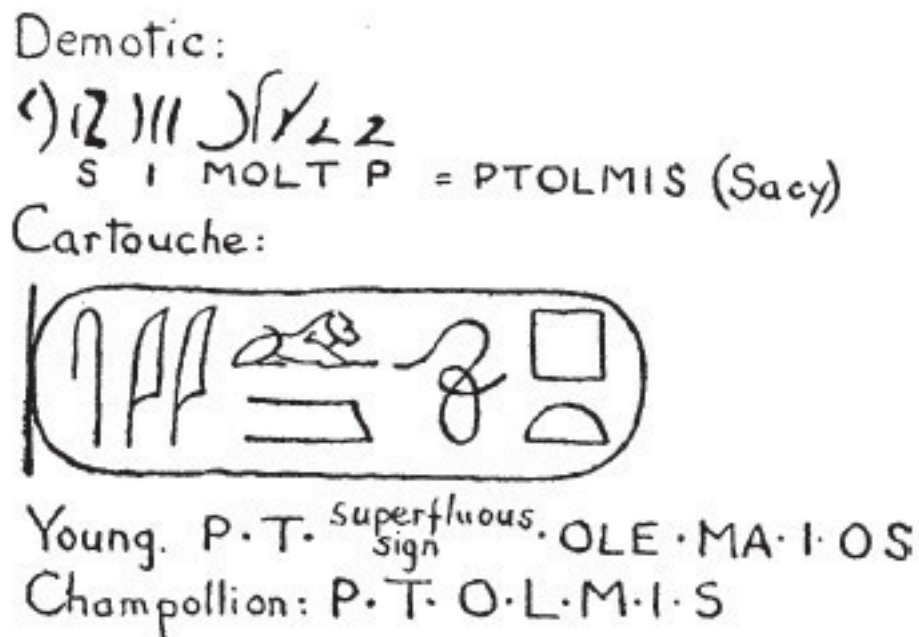 Demotic:
S I MOLT P = PTOLMIS (Sacy)
Cartouche:
Young. P·T· superfluous sign · OLE·MA·I·OS
Champollion: P·T·O·L·M·I·S